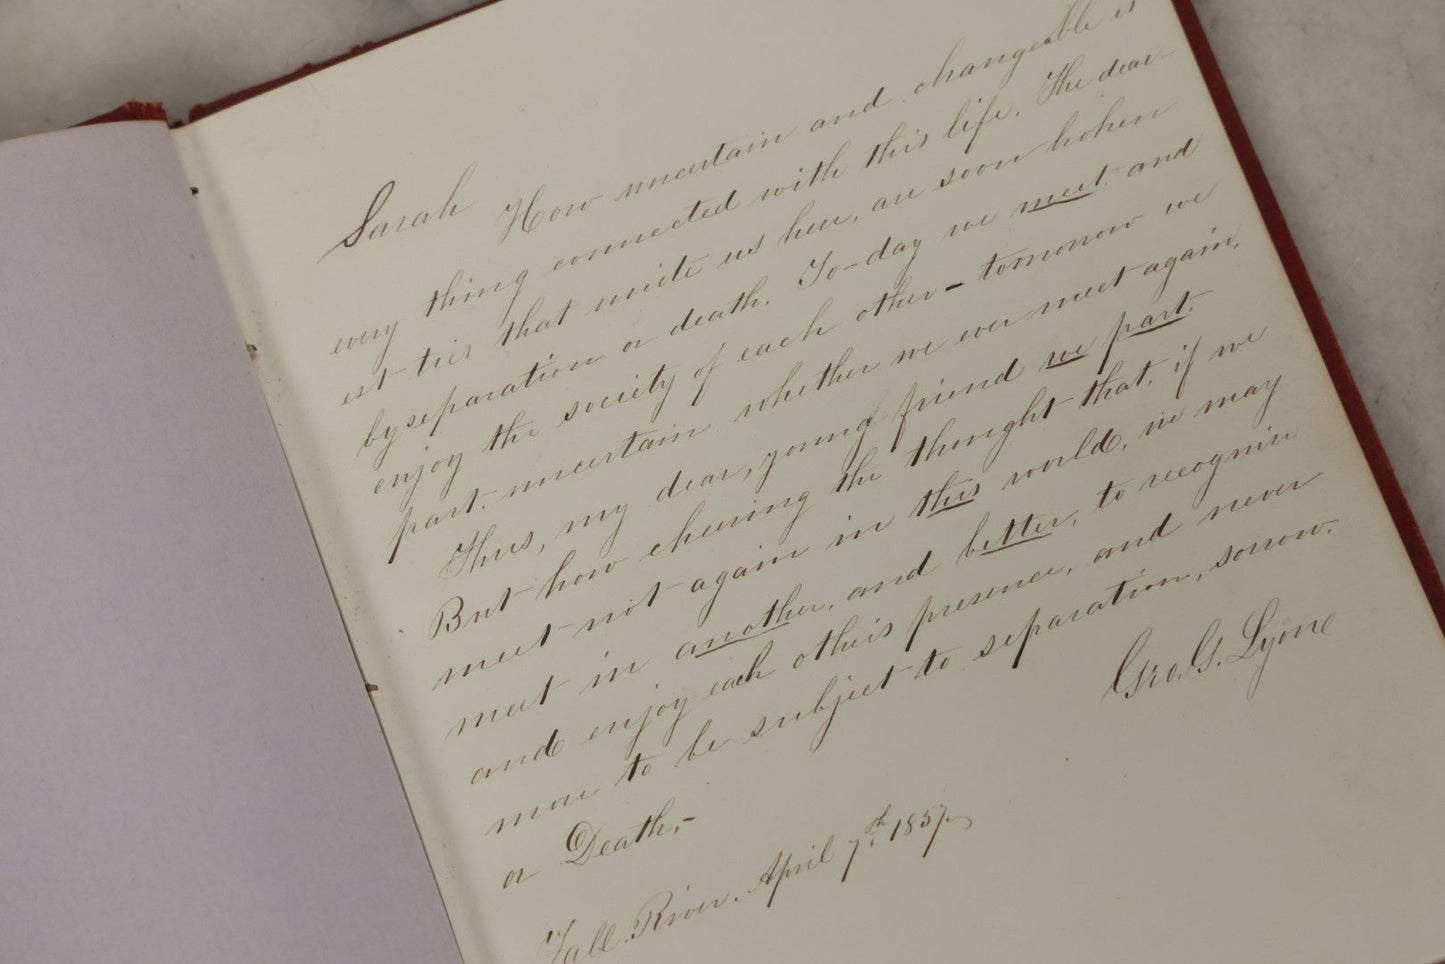 Sarah How uncertain and changeable is
every thing connected with this life. The dear-
est ties that unite us here, are soon broken
by separation or death. To-day we meet and
enjoy the society of each other - tomorrow we
part. uncertain whether we ever meet again.
Thus, my dear, young friend we part.
But how cheering the thought that, if we
meet not again in this world, we may
meet in another, and better, to recognise
and enjoy each others presence, and never
more to be subject to separation, sorrow.
or Death,-
Geo. G. Lyme
Fall River. April 7th. 1857.